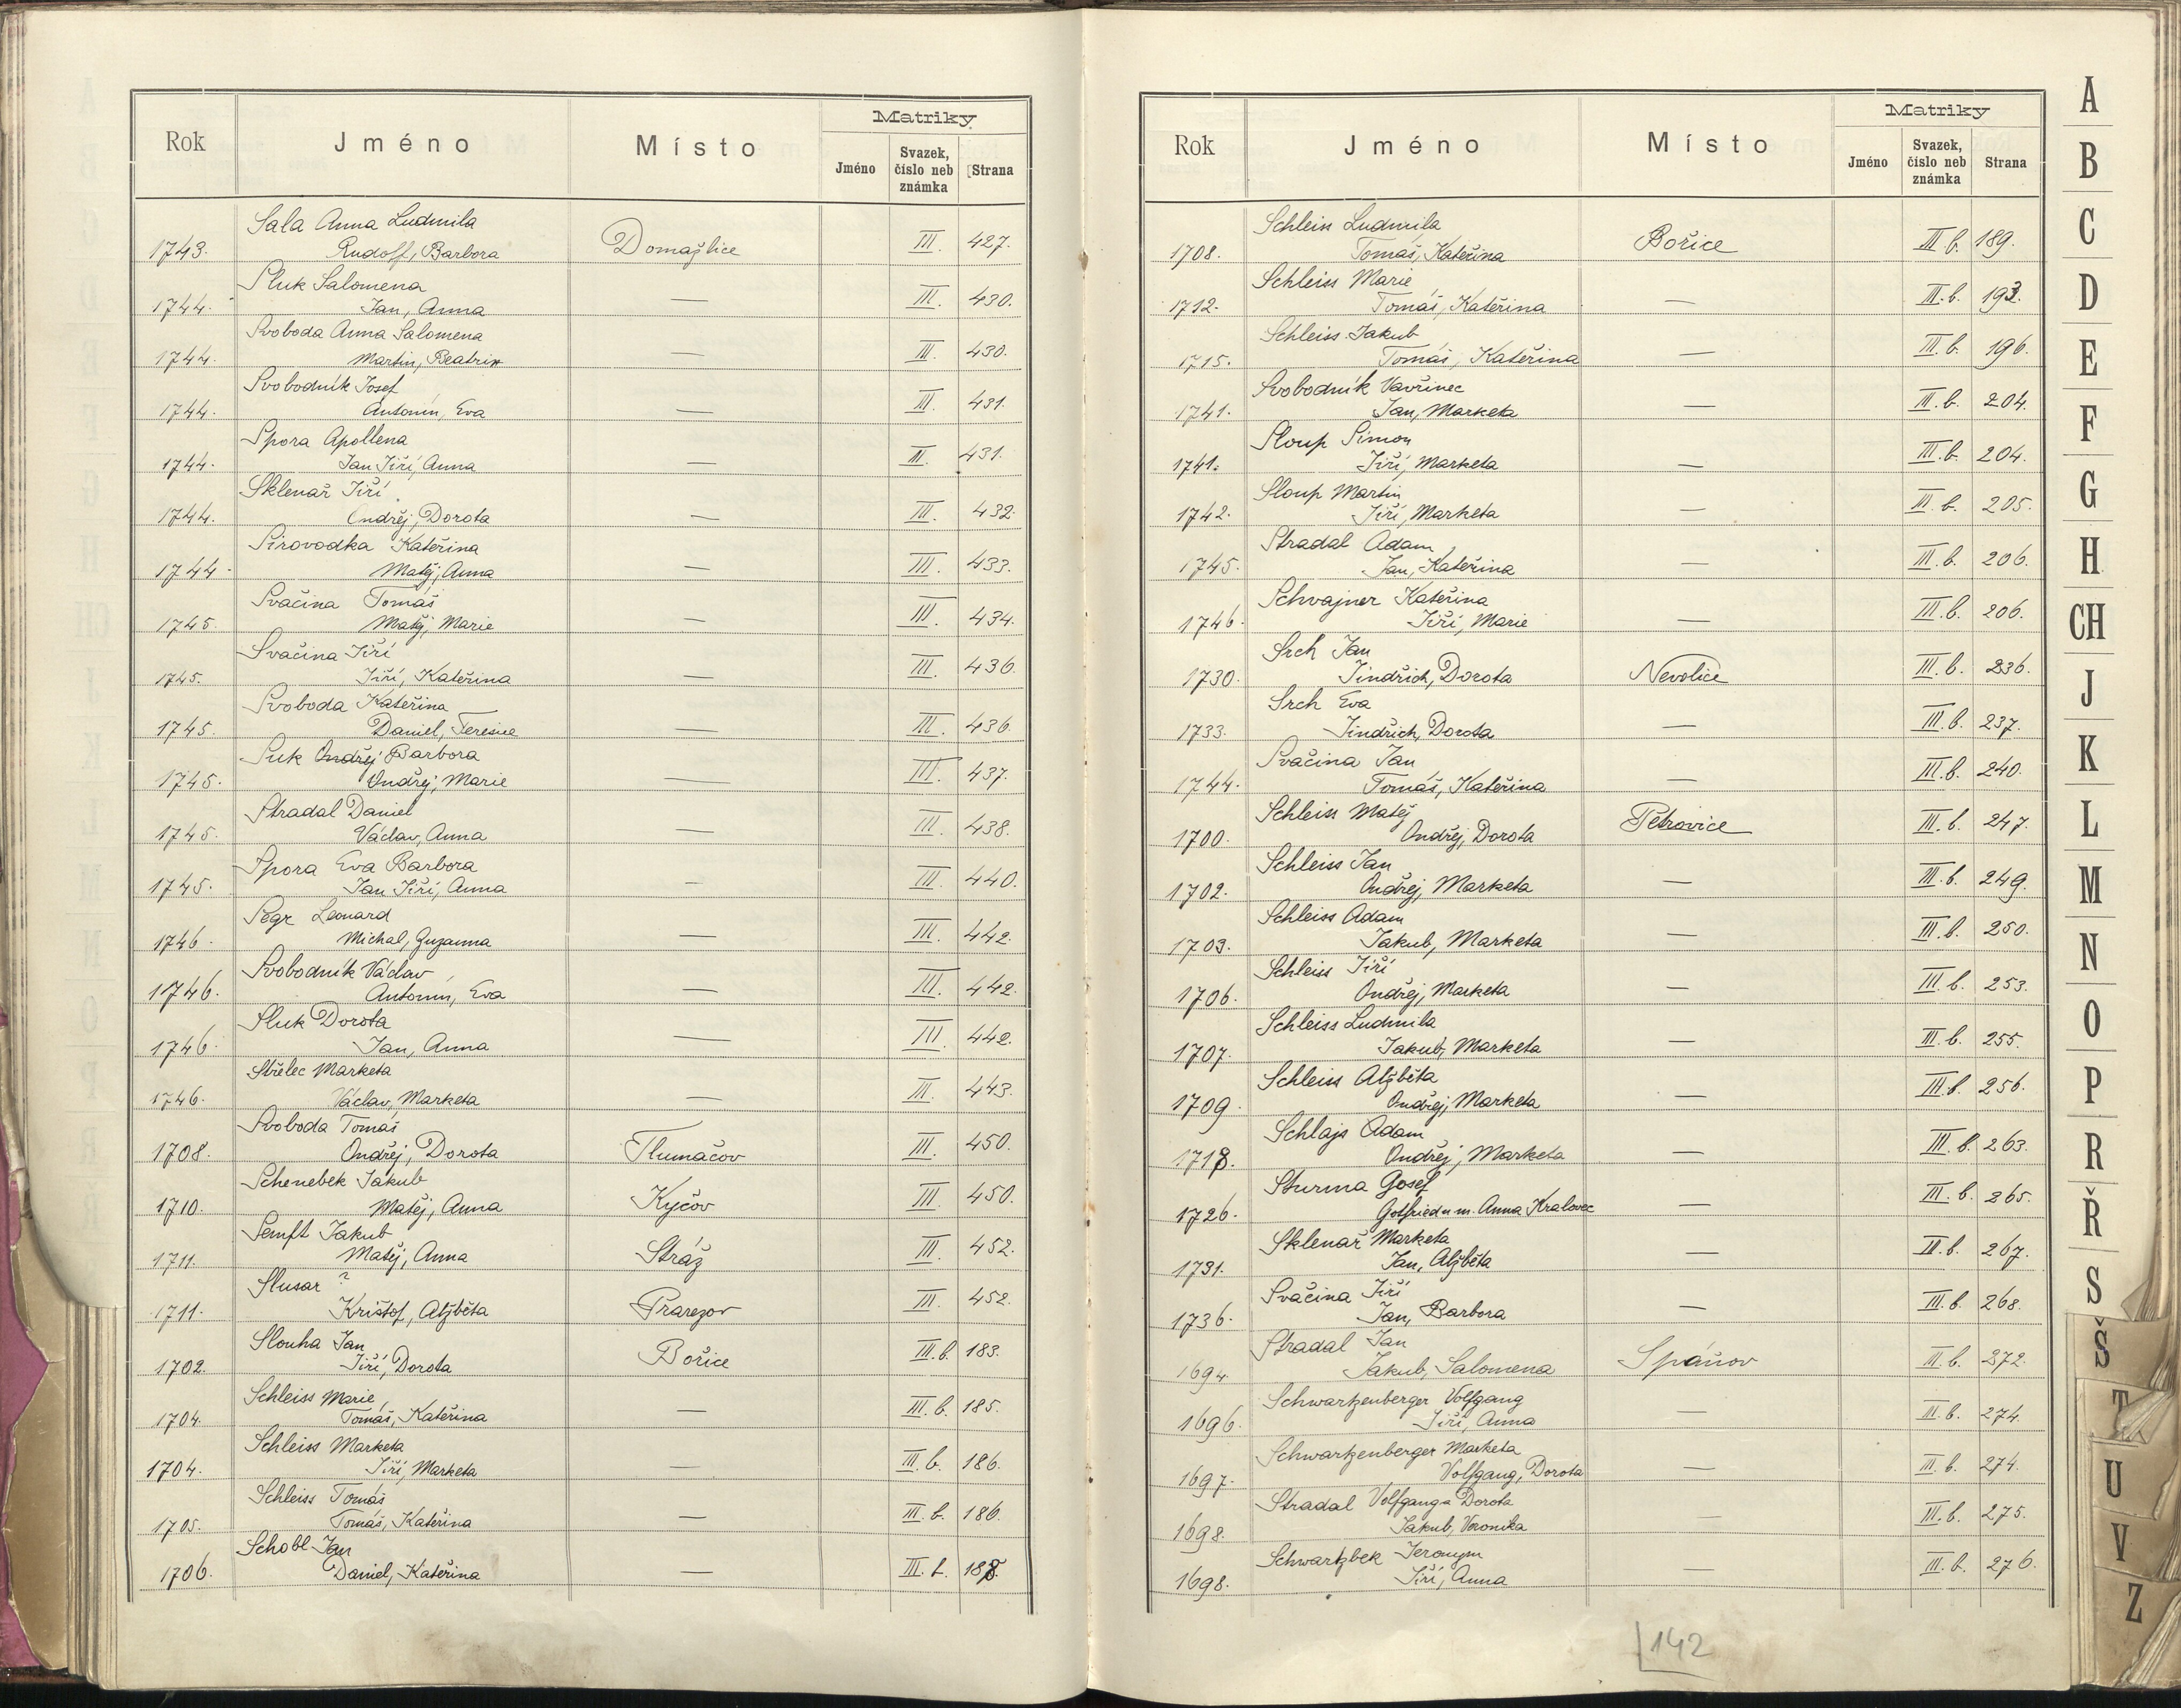 Rok Jméno Místo Matriky
Jméno Svazek, číslo neb známka Strana
Sala Anna Ludmila
1743. Rudolf, Barbora Domažlice III. 427.
Sluk Salomena
1744. Jan, Anna — III. 430.
Svoboda Anna Salomena
1744. Martin, Beatrix — III. 430.
Svobodník Josef
1744. Antonín, Eva — III. 431.
Spora Apollena
1744. Jan Jiří, Anna — III. 431.
Sklenař Jiří
1744. Ondřej, Dorota — III. 432.
Sirovodka Kateřina
1744. Matěj, Anna — III. 433.
Svačina Tomáš
1745. Matěj, Marie — III. 434.
Svačina Jiří
1745. Jiří, Kateřina — III. 436.
Svoboda Kateřina
1745. Daniel, Teresie — III. 436.
Suk Ondřej Barbora
1745. Ondřej, Marie — III. 437.
Stradal Daniel
1745. Václav, Anna — III. 438.
Spora Eva Barbora
1745. Jan Jiří, Anna — III. 440.
Segr Leonard
1746. Michal, Zuzanna — III. 442.
Svobodník Václav
1746. Antonín, Eva — III. 442.
Sluk Dorota
1746. Jan, Anna — III. 442.
Střelec Marketa
1746. Václav, Marketa — III. 443.
Svoboda Tomáš
1708. Ondřej, Dorota Tlumačov III. 450.
Schenebek Jakub
1710. Matěj, Anna Kyčov III. 450.
Senft Jakub
1711. Matěj, Anna Stráž III. 452.
Slusar ?
1711. Krištof, Alžběta Prarezov III. 452.
Slouha Jan
1702. Jiří, Dorota Bořice III.b. 183.
Schleiss Marie
1704. Tomáš, Kateřina — III.b. 185.
Schleiss Marketa
1704. Jiří, Marketa — III.b. 186.
Schleiss Tomáš
1705. Tomáš, Kateřina — III.b. 186.
Schobl Jan
1706. Daniel, Kateřina — III.b. 188.
Rok Jméno Místo Matriky
Jméno Svazek, číslo neb známka Strana
Schleiss Ludmila
1708. Tomáš, Kateřina Bořice III b. 189.
Schleiss Marie
1712. Tomáš, Kateřina — III.b. 193.
Schleiss Jakub
1715. Tomáš, Kateřina — III.b. 196.
Svobodník Vavřinec
1741. Jan, Marketa — III.b. 204.
Sloup Simon
1741. Jiří, Marketa — III.b. 204.
Sloup Martin
1742. Jiří, Marketa — III.b. 205.
Stradal Adam
1745. Jan, Kateřina — III.b. 206.
Schvajner Kateřina
1746. Jiří, Marie — III.b. 206.
Srch Jan
1730. Jindřich, Dorota Nevolice III.b. 236.
Srch Eva
1733. Jindřich, Dorota — III.b. 237.
Svačina Jan
1744. Tomáš, Kateřina — III.b. 240.
Schleiss Matěj
1700. Ondřej, Dorota Petrovice III.b. 247.
Schleiss Jan
1702. Ondřej, Marketa — III.b. 249.
Schleiss Adam
1703. Jakub, Marketa — III.b. 250.
Schleiss Jiří
1706. Ondřej, Marketa — III.b. 253.
Schleiss Ludmila
1707. Jakub, Marketa — III.b. 255.
Schleiss Alžběta
1709. Ondřej, Marketa — III.b. 256.
Schlajs Adam
1718. Ondřej, Marketa — III.b. 263.
Sturma Gosef
1726. Gotfried n. m. Anna Kralovec — III.b. 265.
Sklenař Marketa
1731. Jan, Alžběta — III.b. 267.
Svačina Jiří
1736. Jan, Barbora — III.b. 268.
Stradal Jan
1694. Jakub, Salomena Spáňov III.b. 272.
Schwartzenberger Volfgang
1696. Jiří, Anna — III.b. 274.
Schwartzenberger Marketa
1697. Volfgang, Dorota — III.b. 274.
Stradal Volfganga Dorota
1698. Jakub, Veronika — III.b. 275.
Schwartzbek Jeronym
1698. Jiří, Anna — III.b. 276.
142
A
B
C
D
E
F
G
H
CH
J
K
L
M
N
O
P
R
Ř
S
Š
T
U
V
Z